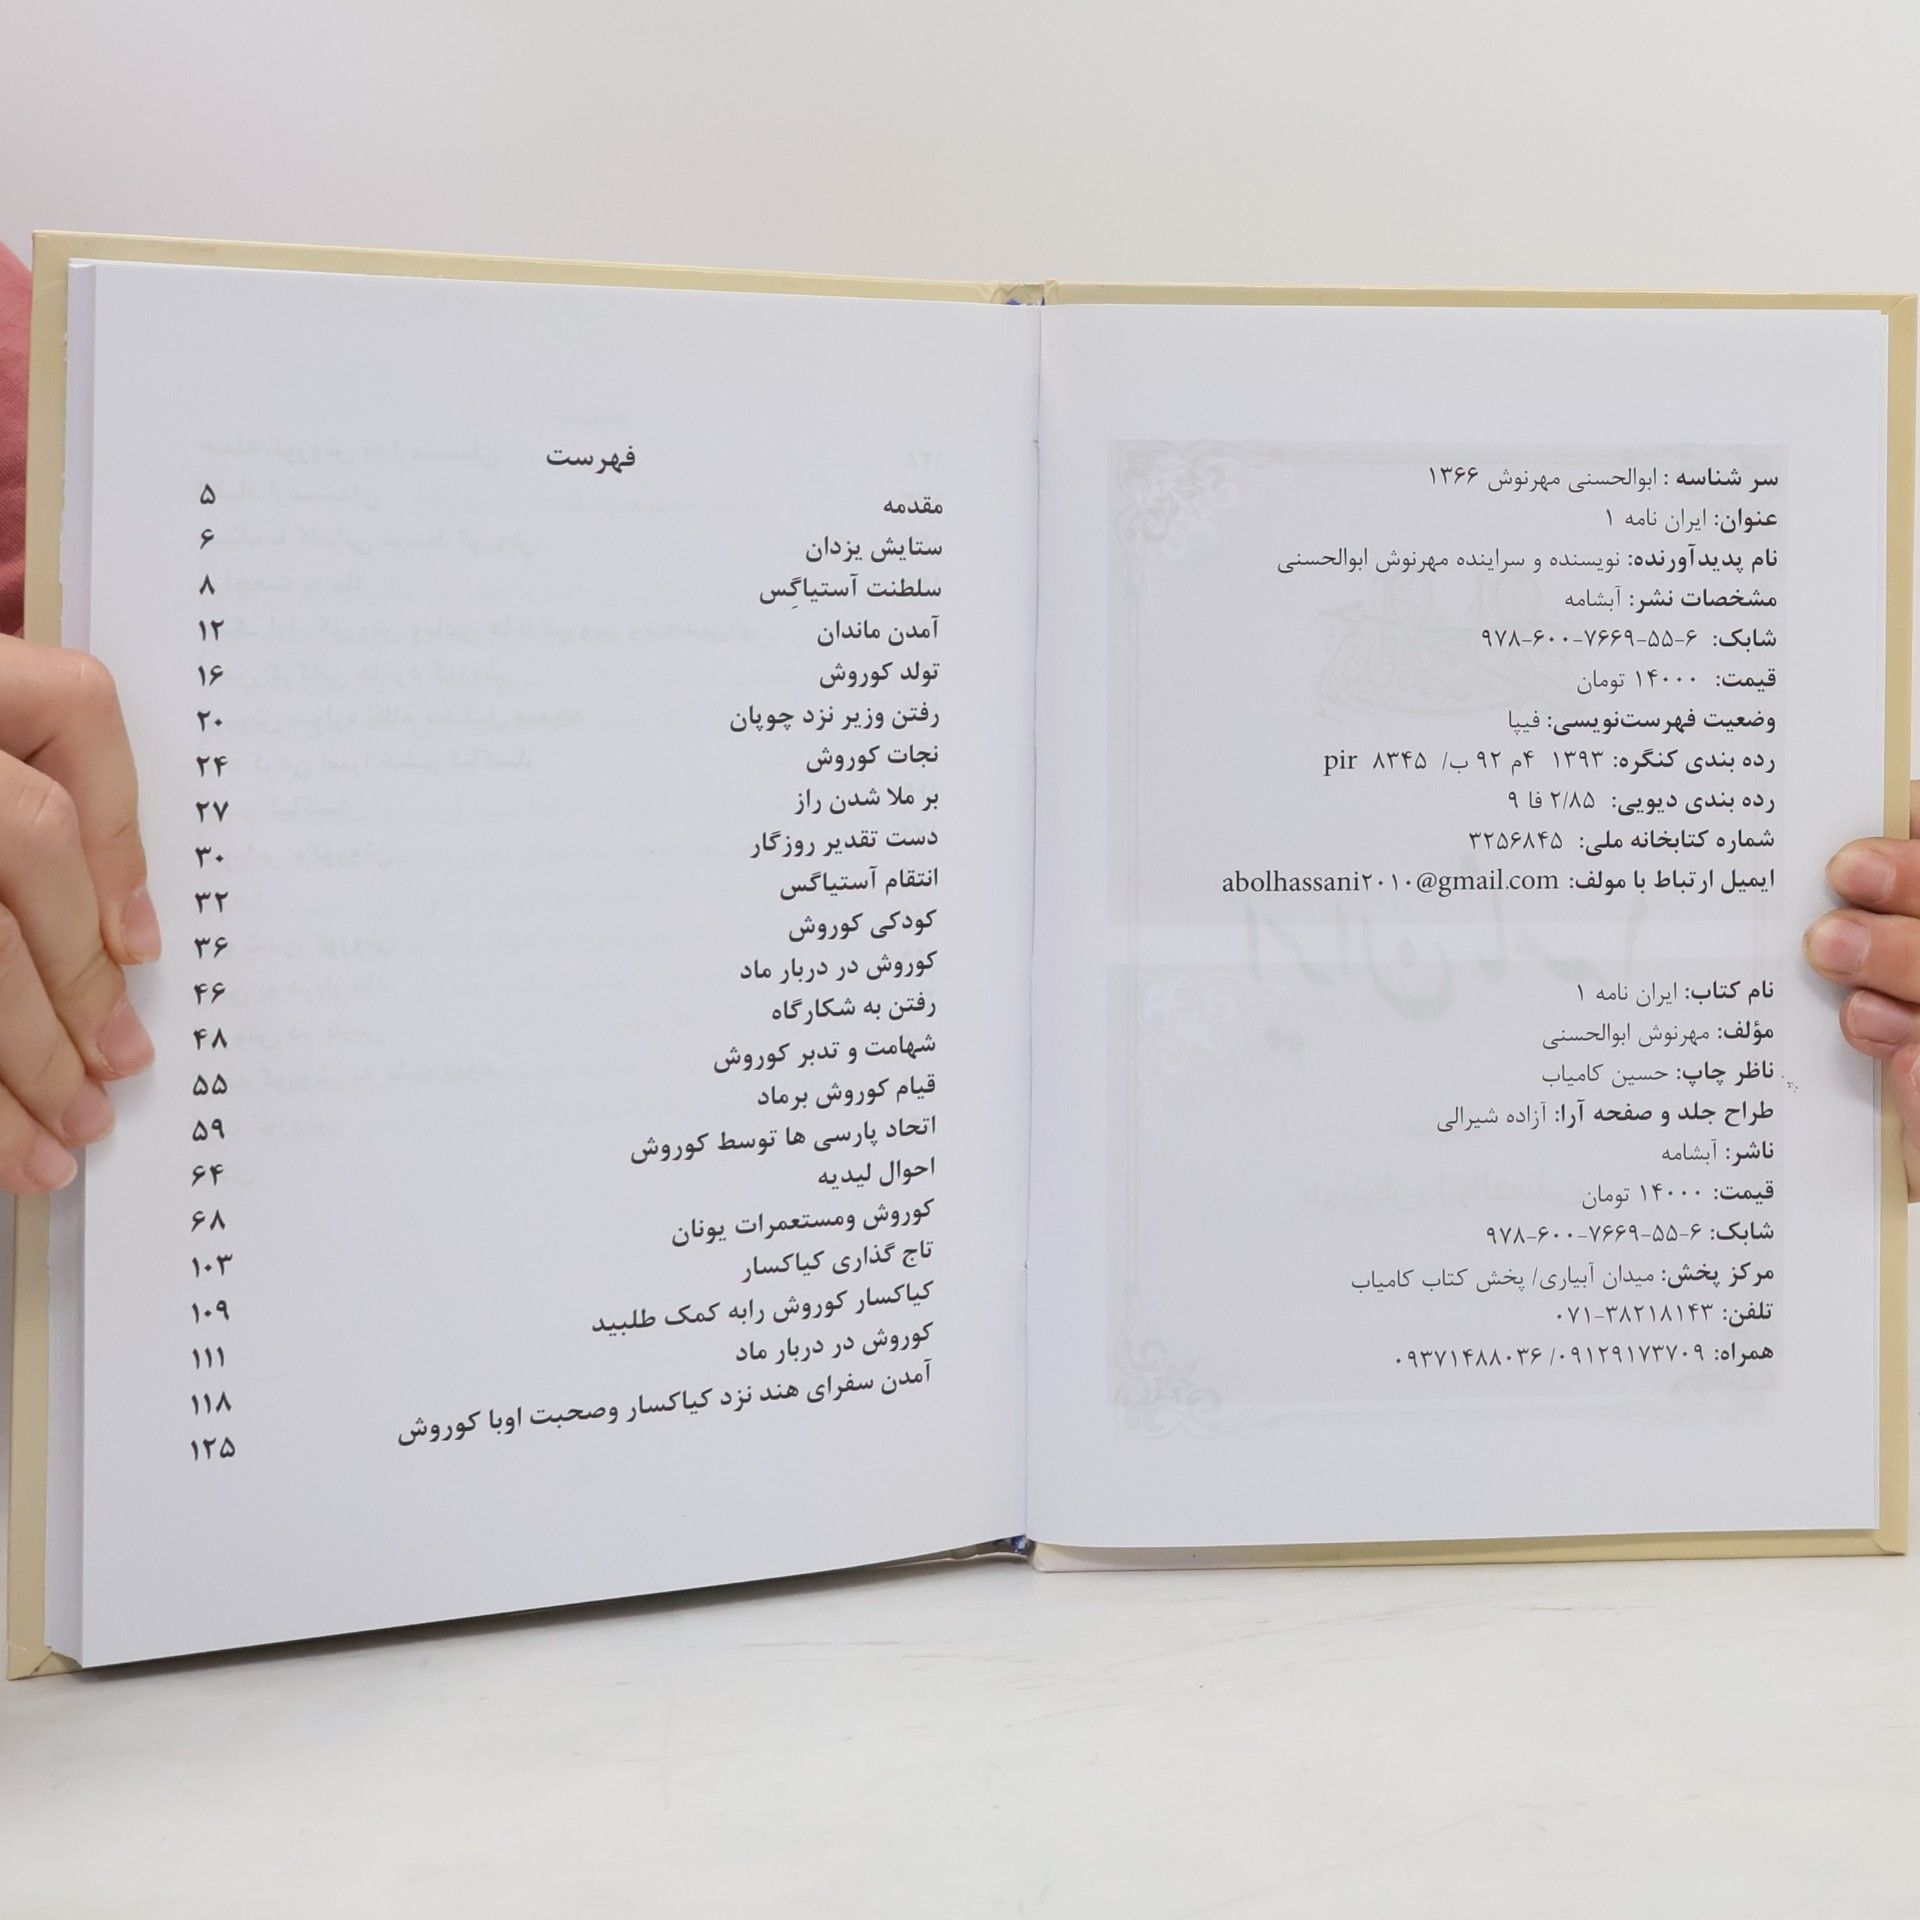 سر شناسه : ابوالحسنی مهرنوش ۱۳۶۶
عنوان: ایران نامه ۱
نام پدیدآورنده: نویسنده و سراینده مهرنوش ابوالحسنی
مشخصات نشر: آبشامه
شابک: ۹۷۸-۶۰۰-۷۶۶۹-۵۵-۶
قیمت: ۱۴۰۰۰ تومان
وضعیت فهرست‌نویسی: فیپا
رده بندی کنگره: ۱۳۹۳ ۴م ۹۲ ب/ ۸۳۴۵ pir
رده بندی دیویی: ۲/۸۵ فا ۹
شماره کتابخانه ملی: ۳۲۵۶۸۴۵
ایمیل ارتباط با مولف: abolhassani۲۰۱۰@gmail.com
نام کتاب: ایران نامه ۱
مؤلف: مهرنوش ابوالحسنی
ناظر چاپ: حسین کامیاب
طراح جلد و صفحه آرا: آزاده شیرالی
ناشر: آبشامه
قیمت: ۱۴۰۰۰ تومان
شابک: ۹۷۸-۶۰۰-۷۶۶۹-۵۵-۶
مرکز پخش: میدان آبیاری/ پخش کتاب کامیاب
تلفن: ۰۷۱-۳۸۲۱۸۱۴۳
همراه: ۰۹۱۲۹۱۷۳۷۰۹/ ۰۹۳۷۱۴۸۸۰۳۶
فهرست
مقدمه ۵
ستایش یزدان ۶
سلطنت آستیاگِس ۸
آمدن ماندان ۱۲
تولد کوروش ۱۶
رفتن وزیر نزد چوپان ۲۰
نجات کوروش ۲۴
بر ملا شدن راز ۲۷
دست تقدیر روزگار ۳۰
انتقام آستیاگس ۳۲
کودکی کوروش ۳۶
کوروش در دربار ماد ۴۶
رفتن به شکارگاه ۴۸
شهامت و تدبر کوروش ۵۵
قیام کوروش برماد ۵۹
اتحاد پارسی ها توسط کوروش ۶۴
احوال لیدیه ۶۸
کوروش ومستعمرات یونان ۱۰۳
تاج گذاری کیاکسار ۱۰۹
کیاکسار کوروش رابه کمک طلبید ۱۱۱
کوروش در دربار ماد ۱۱۸
آمدن سفرای هند نزد کیاکسار وصحبت اوبا کوروش ۱۲۵